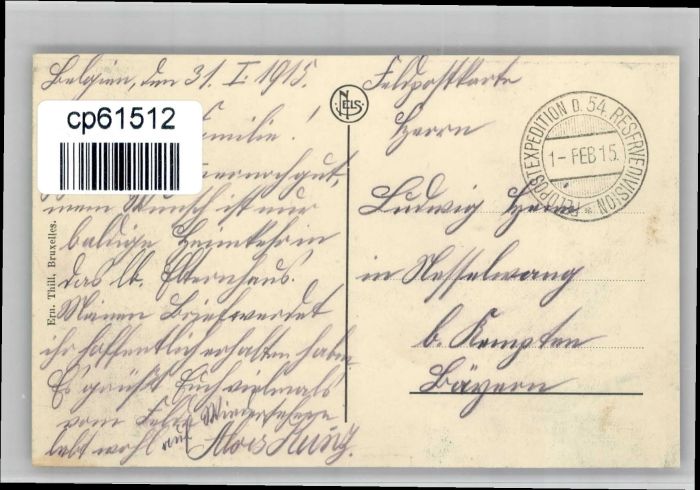 Belgien, den 31. I. 1915.
cp61512
Familie!
immernochgut,
mein Wunsch ist nur
baldige Heimkehr in
das lb. Elternhaus.
Meinen Brief werdet
ihr hoffentlich erhalten haben.
Es grüßt Euch vielmals
vom Felde
lebt wohl Alois
Ern. Thill, Bruxelles.
NELS
Feldpostkarte
Herrn
Ludwig
in Nesselwang
b. Kempten
Bayern
FELDPOSTEXPEDITION D. 54. RESERVEDIVISION
1- FEB 15.